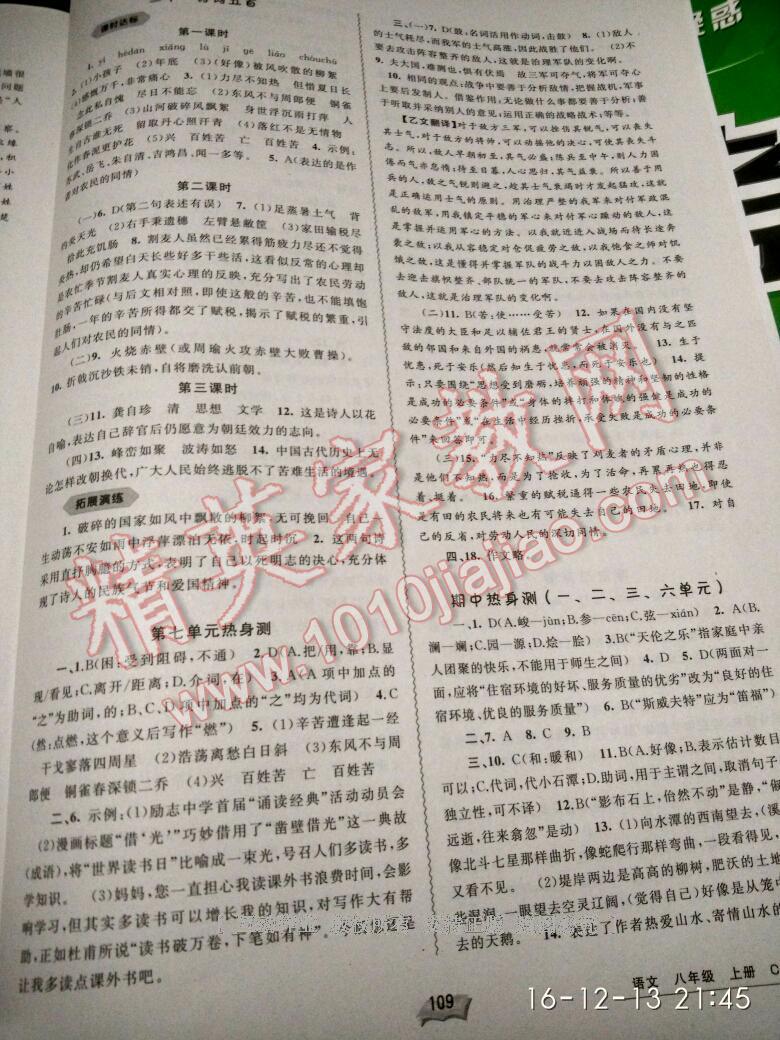 课时达标
第一课时
1. yì hèdàn xiāng lù jì gé liáo chóuchú
2. (1)小孩子 (2)年底 (3)(好像)被风吹散的柳絮
(4)感慨万千,非常痛心 3. (1)力尽不知热 但惜夏日长
念此私自愧 尽日不能忘 (2)东风不与周郎便 铜雀
春深锁二乔 (3)山河破碎风飘絮 身世浮沉雨打萍 人
生自古谁无死 留取丹心照汗青 (4)落红不是无情物
化作春泥更护花 (5)兴 百姓苦 亡 百姓苦 4. 示例:
苏武、岳飞、朱自清、吉鸿昌、闻一多等。 5. A(表达的是作
者对农民的同情)
第二课时
(一)6. D(第二句表述有误) 7. (1)足蒸暑土气 背
灼炎天光 (2)右手秉遗穗 左臂悬敝筐 (3)家田输税尽
拾此充饥肠 8. 割麦人虽然已经累得筋疲力尽还不觉得
炎热,却仍希望白天长些好多干些活,这看似反常的心理却
是农忙季节割麦人真实心理的反映,充分写出了农民劳动
的辛苦忙碌(与后文相对照,即使这般的辛苦,也不能填饱
肚肠,一年的辛苦所得都交了赋税,揭示了赋税的繁重,引
起人们对农民的同情)。
(二)9. 火烧赤壁(或周瑜火攻赤壁大败曹操)。
10. 折戟沉沙铁未销,自将磨洗认前朝。
第三课时
(三)11. 龚自珍 清 思想 文学 12. 这是诗人以花
自喻,表达自己辞官后仍愿意为朝廷效力的志向。
(四)13. 峰峦如聚 波涛如怒 14. 中国古代历史上无
论怎样改朝换代,广大人民始终逃脱不了苦难生活的境遇。
拓展演练
1. 破碎的国家如风中飘散的柳絮,无可挽回 自己一
生动荡不安如雨中浮萍漂泊无依,时起时沉 2. 这两句诗
采用直抒胸臆的方式,表明了自己以死明志的决心,充分体
现了诗人的民族气节和爱国精神。
第七单元热身测
一、1. B(困:受到阻碍,不通) 2. D(A.把/用,靠;B.显
现/看见;C.离开/距离;D.介词:在) 3. A(A项中加点的
“之”为助词,的;B、C、D项中加点的“之”均为代词) 4. C
(然:点燃,这个意义后写作“燃”) 5. (1)辛苦遭逢起一经
干戈寥落四周星 (2)浩荡离愁白日斜 (3)东风不与周
郎便 铜雀春深锁二乔 (4)兴 百姓苦 亡 百姓苦
二、6. 示例:(1)励志中学首届“诵读经典”活动动员会
(2)漫画标题“借‘光’”巧妙借用了“凿壁借光”这一典故
(成语),将“世界读书日”比喻成一束光,号召人们多读书,多
学知识。 (3)妈妈,您一直担心我读课外书浪费时间,会影
响学习。但其实多读书可以增长我的知识,对写作大有帮
助,正如杜甫所说“读书破万卷,下笔如有神”。
让我多读点课外书吧。
三、(一)7. D(鼓:名词活用作动词,击鼓) 8. (1)敌人
的士气耗尽,而我军的士气高涨,因此战胜了他们。 (2)不
要去攻击阵容整齐的敌人,这就是治理军队的变化啊。
9. 夫大国,难测也,惧有伏焉 故三军可夺气,将军可夺心
10. 相同的观点:战争中要善于分析敌情,把握战机,军事
上要后发制人。借鉴作用:无论做什么事都要善于分析;善
于听取并采纳别人的意见;运用正确的战略战术;等等。
【乙文翻译】对于敌方三军,可以挫伤其锐气,可以丧失
其士气,对于敌方的将帅,可以动摇他的决心,可使其丧失斗
志。所以,敌人早朝初至,其气必盛;陈兵至中午,则人力困
倦而气亦怠惰;待至日暮,人心思归,其气益衰。所以善于用
兵的人,敌之气锐则避之,趁其士气衰竭时才发起猛攻,这就
是正确运用士气的原则。用治理严整的我军来对付军政混
乱的敌军,用我镇定平稳的军心来对付军心躁动的敌人,这
是掌握并运用军心的方法。以我就近进入战场而待长途奔
袭之敌;以我从容稳定对仓促疲劳之敌;以我饱食之师对饥
饿之敌,这是懂得并掌握军队的战斗力以困敌人之力。不要
去迎击旗帜整齐、部队统一的军队,不要去攻击阵容整齐的
敌人,这就是治理军队的变化啊。
(二)11. B(若:使……受苦) 12. 如果在国内没有坚
守法度的大臣和足以辅佐君王的贤士,在国外没有与之匹
敌的邻国和来自外国的祸患,就常常会被消灭。 13. 生于
忧患,死于安乐(然后知生于忧患,而死于安乐也) 14. 提
示:只要围绕“思想受到磨砺,培养顽强的精神和坚韧的性格
是成功的必要条件”或“身体的摔打和体魄的强健是成功的
必要条件”或“在生活中经历挫折,承受失败是成功的必要条
件”来回答即可。
(三)15. “力尽不知热”反映了刈麦者的矛盾心理,并非
是他们不知热,而是为了抢收,为了活命,再累再热也得忍
着、挺着。 16. 繁重的赋税逼得一些农民失去田地,即使
是有田的农民将来也有可能失去自己的田地。 17. 对自
己的反省,对劳动人民的深切同情。
四、18. 作文略
期中热身测(一、二、三、六单元)
一、1. D(A.峻—jùn;B.参—cēn;C.弦—xián) 2. A(B.
澜—斓;C.园—源;D.烩—脍) 3. B(“天伦之乐”指家庭中亲
人团聚的快乐,不能用于师生之间) 4. D 5. D(两面对一
面,应将“住宿环境的好坏、服务质量的优劣”改为“良好的住
宿环境、优良的服务质量”) 6. B(“斯威夫特”应为“笛福”)
二、7. A 8. C 9. B
三、10. C(和:暖和) 11. B(A.好像;B.表示估计数目
可以;C.代词,代小石潭;D.助词,用于主谓之间,取消句子
独立性,可不译) 12. B(“影布石上,佁然不动”是静,“俶
远逝,往来翕忽”是动) 13. (1)向水潭的西南望去,(溪
像北斗七星那样曲折,像蛇爬行那样弯曲,一段看得见,
又看不见。 (2)堤岸两边是高高的柳树,肥沃的土地
些湿润,一眼望去空灵辽阔,(觉得自己)好像是从笼中
去的天鹅。 14. 表达了作者热爱山水、寄情山水的
语文 八年级 上册 C
109
16-12-13 21:45
精英家教网
www.1010jiajiao.com